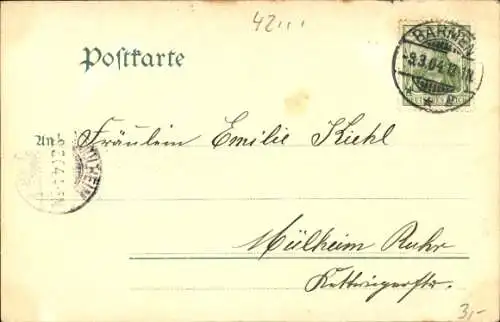 42....
Postkarte
BARMEN
-9.3.04.
An
Fräulein Emilie Kiehl
Mülheim Ruhr
Kettwigerstr.
3,-